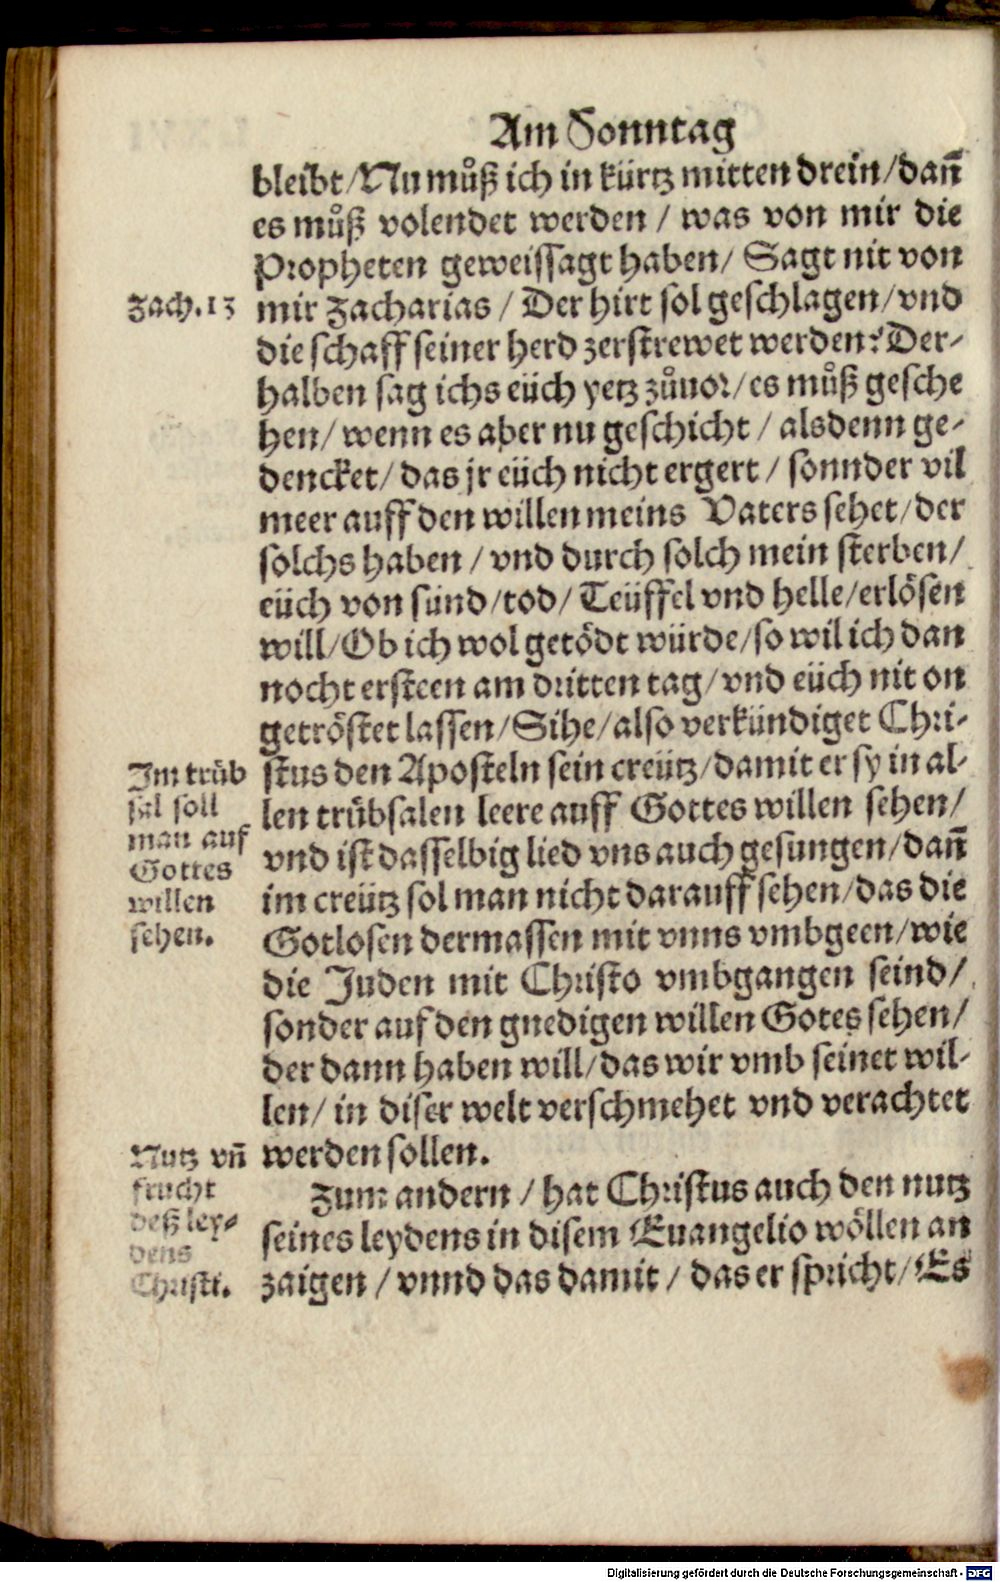 Am Sonntag
bleibt/Nu můß ich in kürtz mitten drein/dañ
es můß volendet werden / was von mir die
Propheten geweissagt haben/ Sagt nit von
Zach.13
mir Zacharias / Der hirt sol geschlagen/vnd
die schaff seiner herd zerstrewet werden? Der-
halben sag ichs eüch yetz zůuor/es můß gesche
hen/ wenn es aber nu geschicht / alsdenn ge-
dencket/ das jr eüch nicht ergert / sonnder vil
meer auff den willen meins Vaters sehet/der
solchs haben / vnd durch solch mein sterben/
eüch von sünd/tod/ Teüffel vnd helle/erlösen
will/Ob ich wol getödt würde/so wil ich dan
nocht ersteen am dritten tag/vnd eüch nit on
getröstet lassen/Sihe/also verkündiget Chri-
Im trüb
sal soll
man auf
Gottes
willen
sehen.
stus den Aposteln sein creütz/damit er sy in al-
len trübsalen leere auff Gottes willen sehen/
vnd ist dasselbig lied vns auch gesungen/dañ
im creütz sol man nicht darauff sehen/das die
Gotlosen dermassen mit vnns vmbgeen/wie
die Juden mit Christo vmbgangen seind/
sonder auf den gnedigen willen Gotes sehen/
der dann haben will/das wir vmb seinet wil-
len/ in diser welt verschmehet vnd verachtet
werden sollen.
Nutz vñ
frucht
deß ley-
dens
Christi.
Zum andern / hat Christus auch den nutz
seines leydens in disem Euangelio wöllen an
zaigen / vnnd das damit / das er spricht/Es
Digitalisierung gefördert durch die Deutsche Forschungsgemeinschaft - DFG